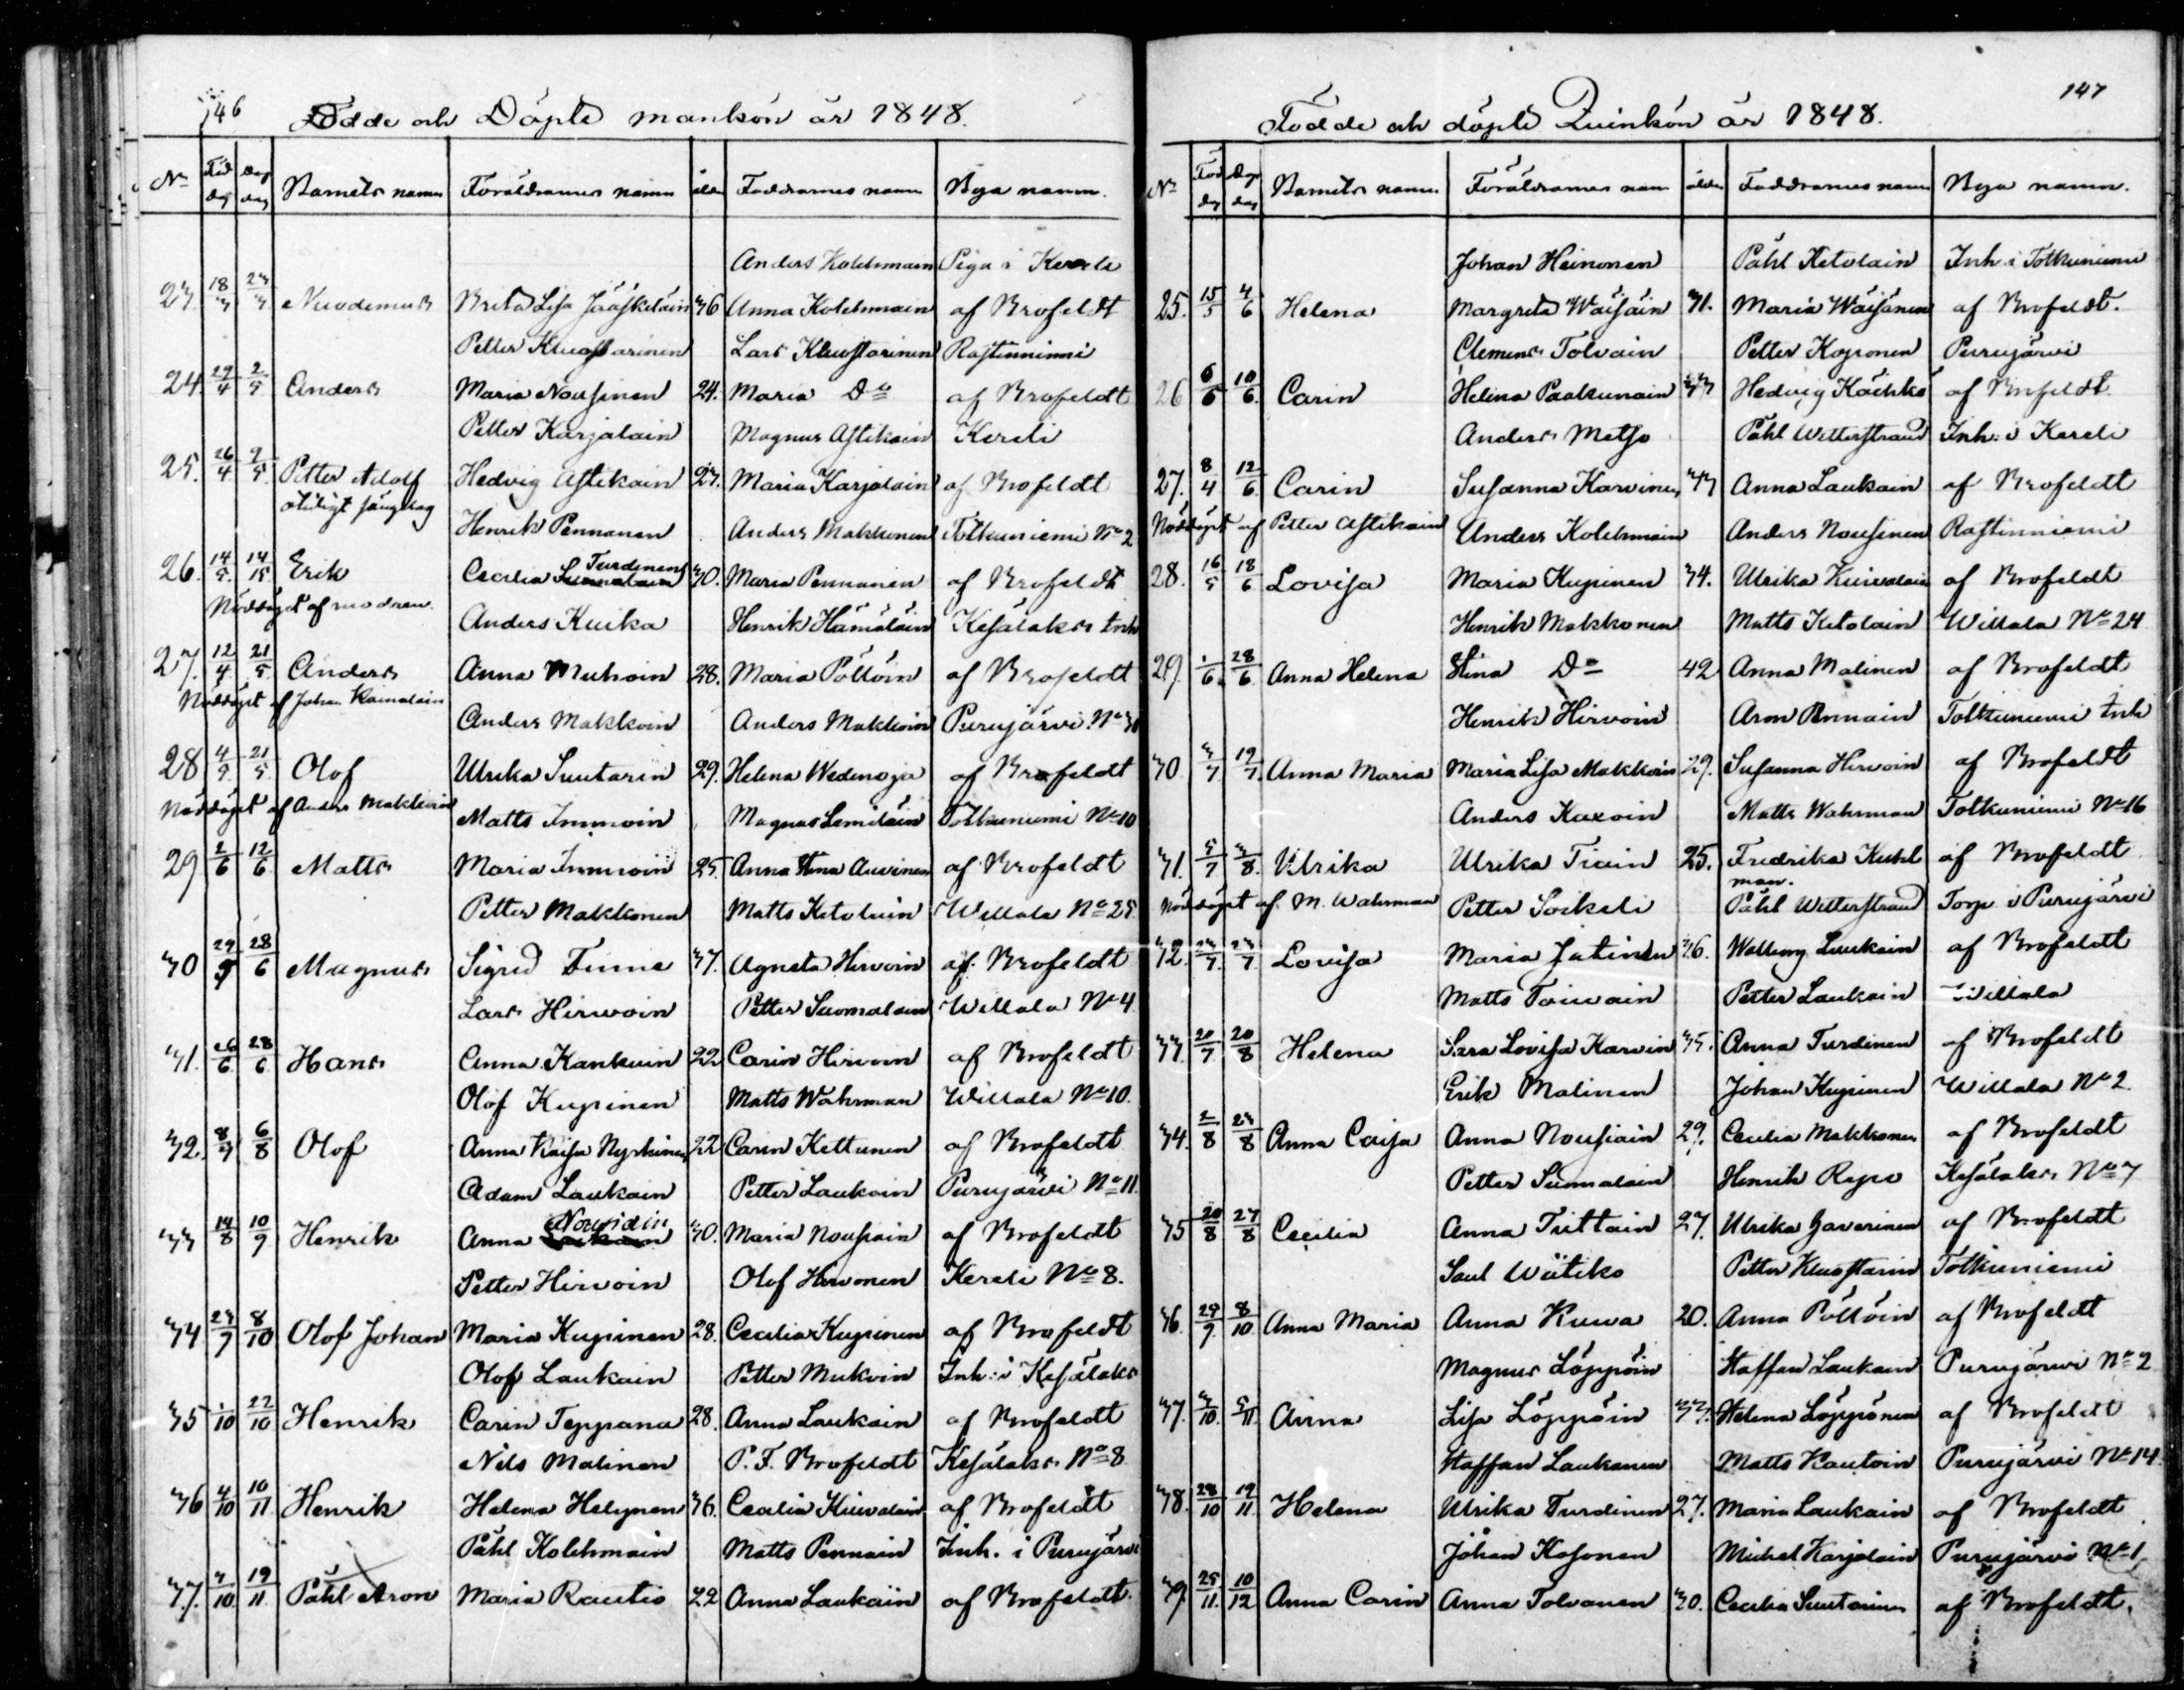 146 Födde och Döpte mankön år 1848.
No Föd dag Döp dag Barnets namn Föräldrarnes namn ålder Faddrarnes namn Bya namn.
Anders Kolehmain Piga i Kereli
23. 18/3 23/3 Nicodemus Brita Lisa Jääskeläin 36 Anna Kolehmain af Brofeldt
Petter Kluuftarinen Lars Kluuftarinen Rastinniemi
24. 29/4 2/5 Anders Maria Nousinen 24. Maria Do af Brofeldt
Petter Karjalain Magnus Astikain Kereli
25. 26/4 2/5 Petter Adolf Hedvig Astikain 23. Maria Karjalain af Brofeldt
Henrik Pennanen Anders Makkonen Totkuniemi No 2
26. 14/5 14/5 Erik Cecilia Turdinen 30. Maria Pennanen af Brofeldt
Nöddöpt af modren.
Anders Kuika Henrik Hämäläin Kesälaks Inh
27. 12/4 21/5 Anders Anna Muhoin 28. Maria Pöllöin af Brofeldt
Nöddöpt af Johan Hämäläin
Anders Makkoin Anders Makkoin Purujärvi No 30
28 4/5 21/5 Olof Ulrika Suutarin 29. Helena Wedenoja af Brofeldt
Nöddöpt af Anders Makkoin
Matts Immoin Magnus Lemiläin Totkuniemi No 10
29 2/6 12/6 Matts Maria Immoin 25. Anna Stina Auvinen af Brofeldt
Petter Makkonen Matts Ketolain Willala No 25
30 29/5 28/6 Magnus Sigrid Timne 37. Agneta Hirvoin af Brofeldt
Lars Hirwoin Petter Suomalain Willala No 4
31. 26/6 28/6 Hans Anna Kankuin 22 Carin Hirvoin af Brofeldt
Olof Kupinen Matts Wahrman Willala No 10.
32. 8/7 6/8 Olof Anna Kaisa Nyrkinen 22 Carin Kettunen af Brofeldt
Adam Laukain Petter Laukain Purujärvi No 11.
33 14/8 10/9 Henrik Anna Nousiain 30. Maria Nousiain af Brofeldt
Petter Hirvoin Olof Hirvonen Kereli No 8.
34 23/9 8/10 Olof Johan Maria Kupinen 28. Cecilia Kupinen af Brofeldt
Olof Laukain Petter Mukoin Inh: i Kesälaks
35 1/10 22/10 Henrik Carin Teppana 28. Anna Laukain af Brofeldt
Nils Malinen P. F. Brofeldt Kesälaks No 8
36 4/10 10/11 Henrik Helena Helynen 36. Cecilia Kiiwalain af Brofeldt
Påhl Kolehmain Matts Pennain Inh. i Purujärvi
37. 3/10 19/11 Påhl Aron Maria Rautio 22 Anna Laukain af Brofeldt.
147
Födde och döpte Quinkön år 1848.
No Föd dag Döp dag Barnets namn Föräldrarnes namn ålder Faddrarnes namn Bya namn.
Johan Heinonen Påhl Ketolain Inh. i Totkuniemi
25. 15/5 4/6 Helena Margreta Wäisäin 31. Maria Wäisänen af Brofeldt.
Clemens Tolvain Petter Koponen Purujärvi
26 6/6 10/6 Carin Helena Paakunain 33 Hedvig Käehkö af Brofeldt.
Anders Metso Påhl Wetterstrand Inh: i Kereli
27. 8/4 12/6 Carin Susanna Karvinen 33 Anna Laukain af Brofeldt
Nöddöpt af Petter Astikain
Anders Kolehmain Anders Nousinen Rastinniemi
28. 16/5 18/6 Lovisa Maria Kupinen 34. Ulrika Kiiwalain af Brofeldt
Henrik Makkonen Matts Ketolain Willala No 24
29. 1/6 28/6 Anna Helena Stina Do 42 Anna Malinen af Brofeldt
Henrik Hirvoin Aron Pennain Totkuniemi Inh
30 3/7 19/7 Anna Maria Maria Lisa Makkoin 29. Susanna Hirvoin af Brofeldt
Anders Kaxoin Matts Wahrman Totkuniemi No 16
31. 5/7 3/8 Ulrika Ulrika Tiain 25. Fredrika Kuhlman. af Brofeldt
Nöddöpt af M. Wahrman Petter Soikeli Påhl Wetterstrand Torp i Purujärvi
32. 23/7 23/7 Lovisa Maria Jatinen 36. Walborg Laukain af Brofeldt
Matts Toiwain Petter Laukain Willala
33. 20/7 20/8 Helena Sara Lovisa Karvin 35. Anna Turdinen af Brofeldt
Erik Malinen Johan Kupinen Willala No 2
34. 2/8 23/8 Anna Caisa Anna Nousiain 29. Cecilia Makkonen af Brofeldt
Petter Suomalain Henrik Repo Kesälaks No 7
35 20/8 27/8 Cecilia Anna Tiittain 27. Ulrika Gaverinen af Brofeldt
Saul Wiitiko Petter Kluuftarin Totkuniemi
36. 29/9 8/10 Anna Maria Anna Kuwa 20. Anna Pöllöin af Brofeldt
Magnus Löppöin Staffan Laukain Purujärvi No 2
37. 3/10 5/11 Anna Lisa Löppöin 33. Helena Löppönen af Brofeldt
Staffan Laukanen Matts Kautoin Purujärvi No 14
38. 28/10 19/11 Helena Ulrika Turdinen 27. Maria Laukain af Brofeldt
Johan Kosonen Michel Karjalain Purujärvi No 1
39. 25/11 10/12 Anna Carin Anna Tolvanen 30. Cecilia Suutarinen af Brofeldt.